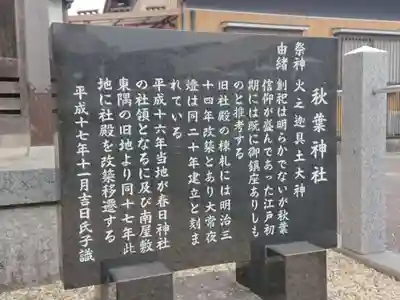 秋葉神社
祭神 火之迦具土大神
由緒 創祀は明らかでないが秋葉
信仰が盛んであった江戸初
期には既に御鎮座ありしも
のと推考する
旧社殿の棟札には明治三
十四年改築とあり大常夜
燈は同二十年建立と刻ま
れている
平成十六年当地が春日神社
の社領となるに及び南屋敷
東隅の旧地より同十七年此
地に社殿を改築移遷する
平成十七年十一月吉日氏子識